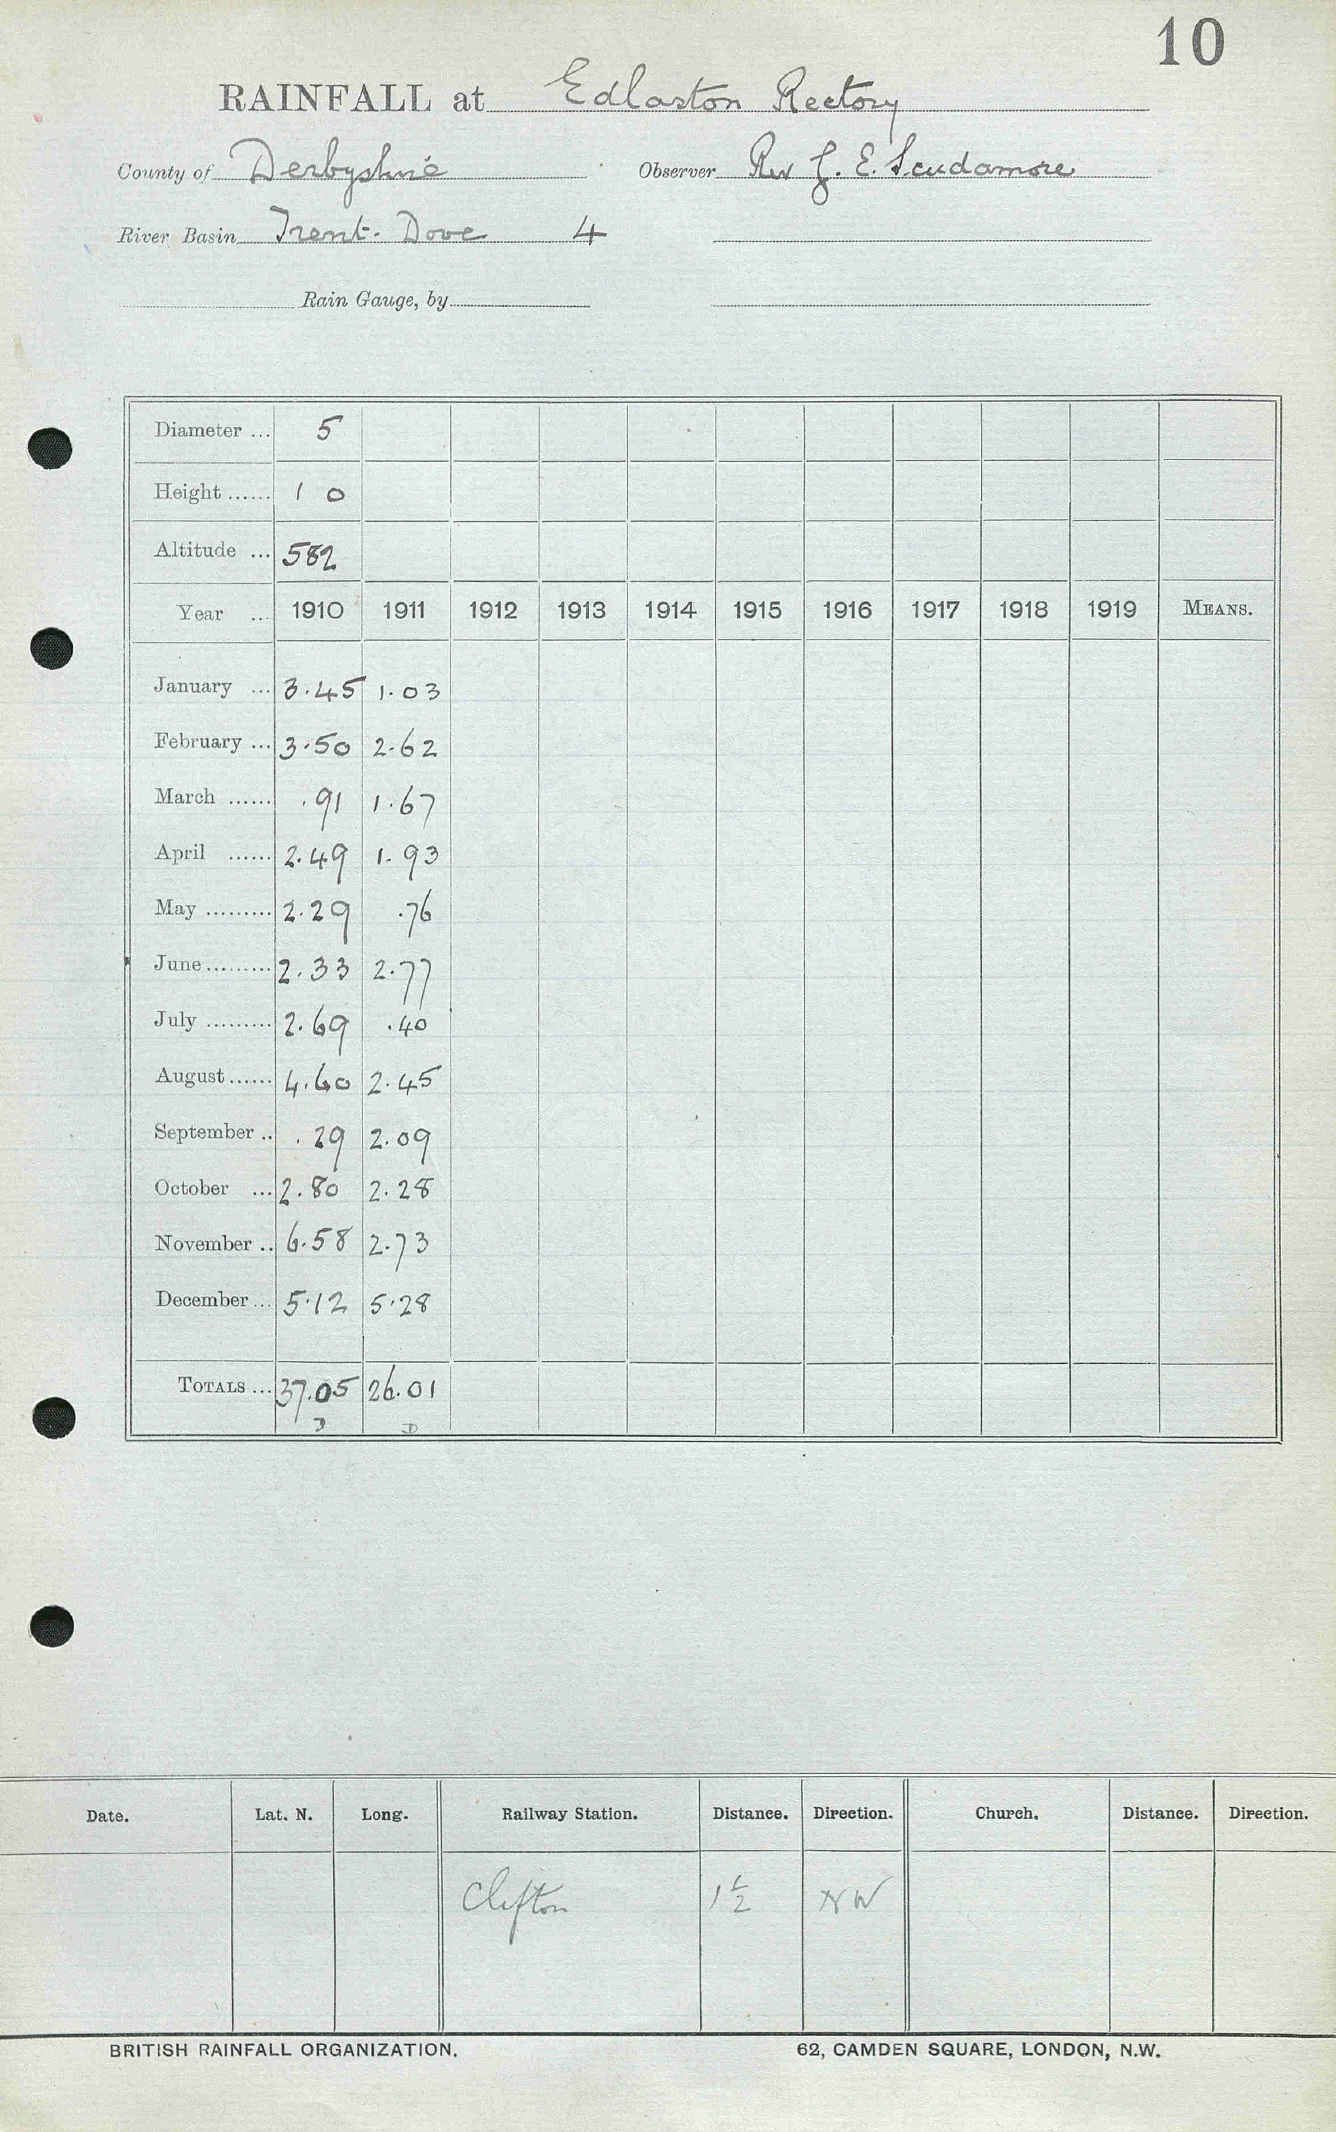 10
RAINFALL at Edlaston Rectory
County of Derbyshire Observer Rev J. E. Scudamore
River Basin Trent. Dove 4
Rain Gauge, by
Diameter ... 5
Height ...... 1 0
Altitude ... 582
Year ... 1910 1911 1912 1913 1914 1915 1916 1917 1918 1919 MEANS.
January ... 3.45 1.03
February ... 3.50 2.62
March ...... .91 1.67
April ...... 2.49 1.93
May ......... 2.29 .76
June ......... 2.33 2.77
July ......... 2.69 .40
August ...... 4.60 2.45
September .. .29 2.09
October ... 2.80 2.28
November .. 6.58 2.73
December ... 5.12 5.28
TOTALS ... 37.05 26.01
D D
Date. Lat. N. Long. Railway Station. Distance. Direction. Church. Distance. Direction.
Clifton 1½ NW
BRITISH RAINFALL ORGANIZATION. 62, CAMDEN SQUARE, LONDON, N.W.